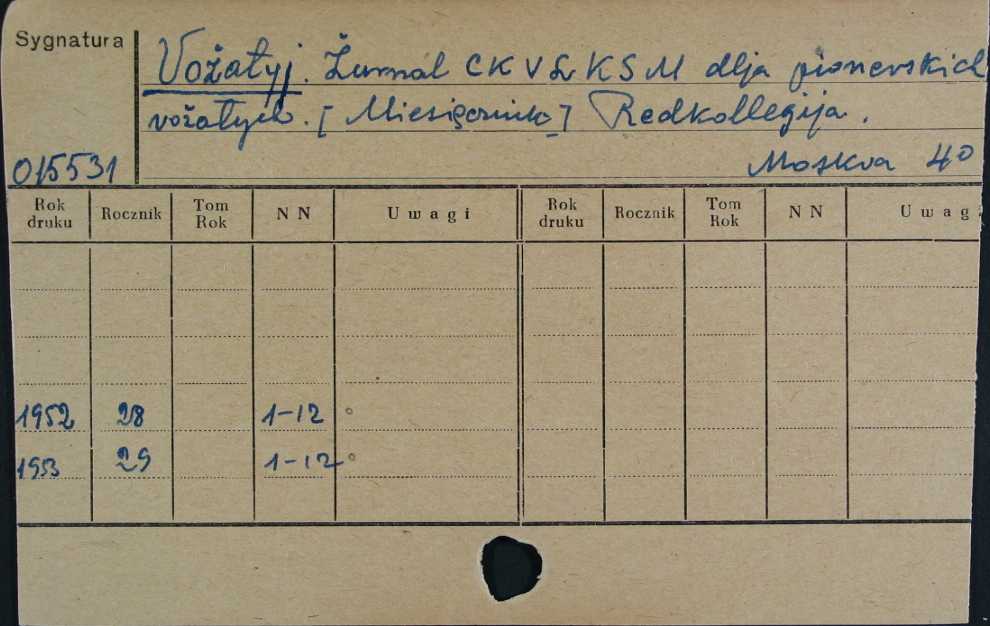 Sygnatura
Vožatyj. Žurnal CK VLKSM dlja pionerskich
vožatych. [Miesięcznik] Redkollegija.
015531
Moskva 40
Rok druku Rocznik Tom Rok NN Uwagi Rok druku Rocznik Tom Rok NN Uwagi
1952 28 1-12 °
1953 29 1-12 °